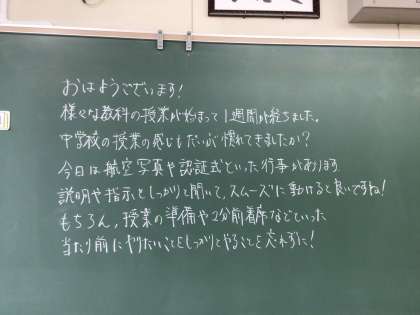 おはようございます!
様々な教科の授業が始まって1週間が経ちました。
中学校の授業の感じもだいぶ慣れてきましたか?
今日は航空写真や認証式といった行事があります。
説明や指示をしっかりと聞いて、スムーズに動けると良いですね!
もちろん、授業の準備や2分前着席などといった
当たり前にやりたいことをしっかりとやることを忘れずに!